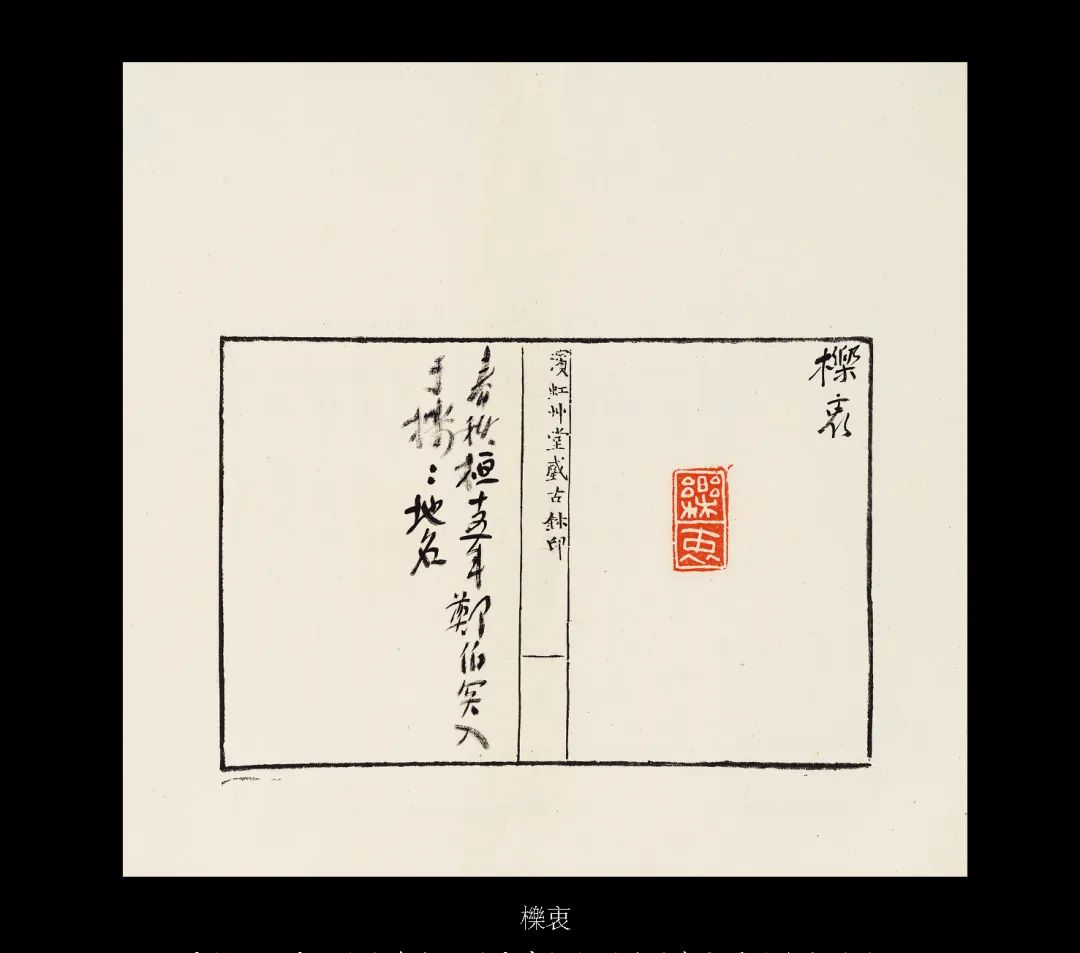 櫟衷
濱虹艸堂藏古鉨印
春秋桓十五年鄭伯突入
于櫟：地名
櫟衷